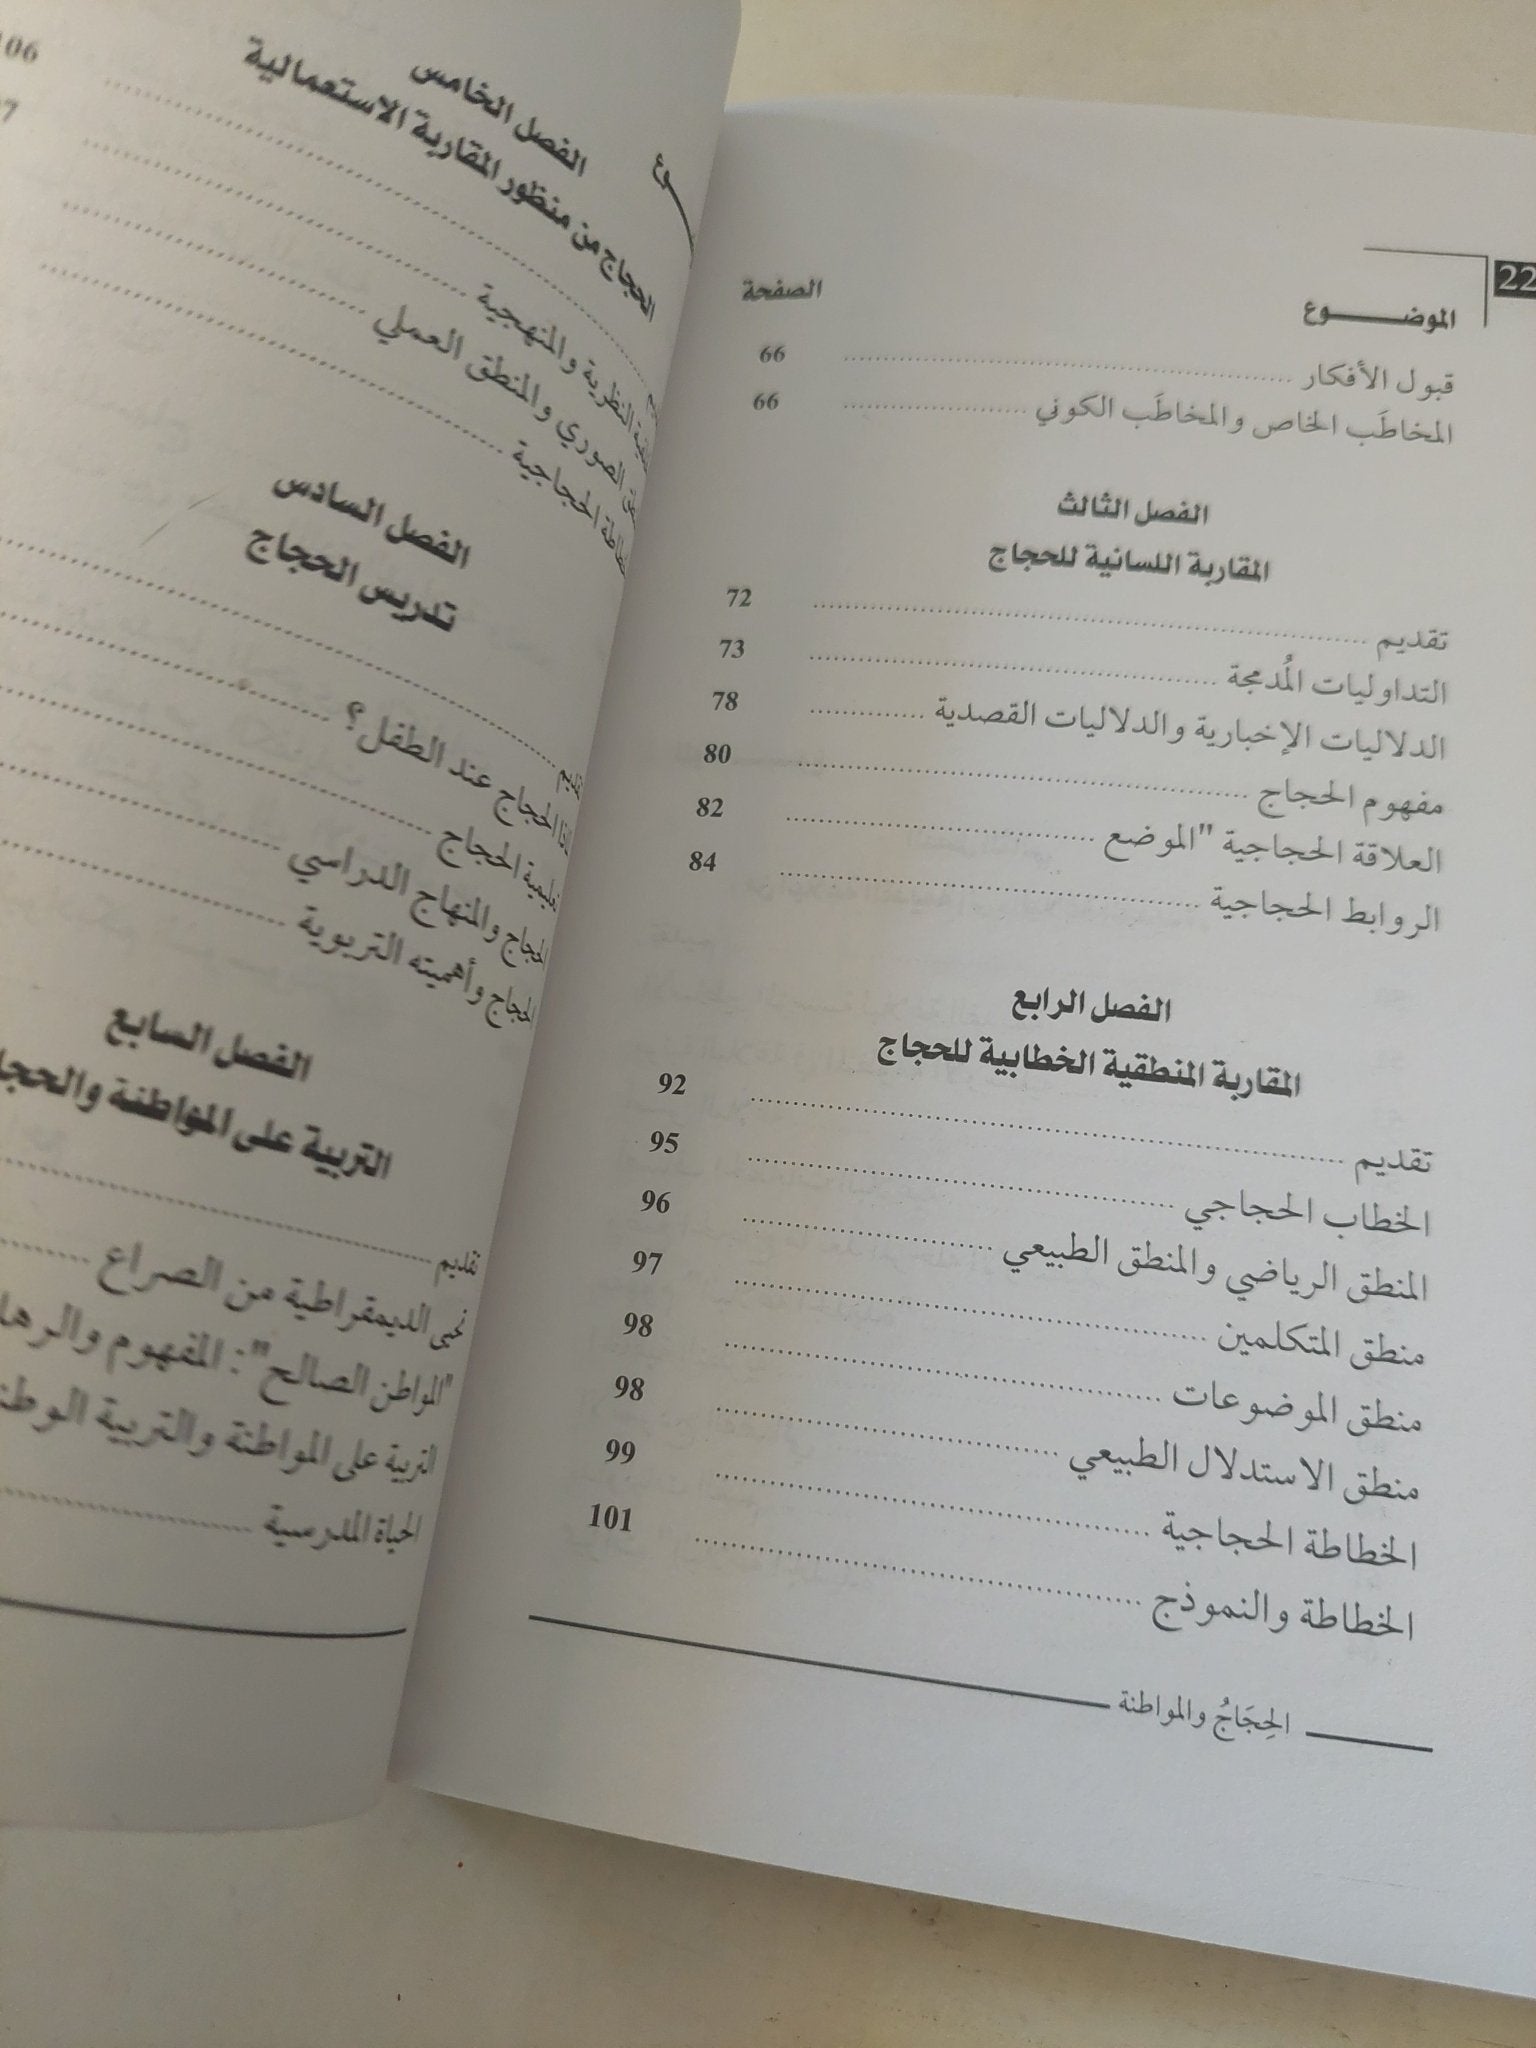 22
الموضـــــــوع الصفحة
قبول الأفكار ........ 66
المخاطَب الخاص والمخاطَب الكوني ........ 66
الفصل الثالث
المقاربة اللسانية للحجاج
تقديم ........ 72
التداوليات المُدمجة ........ 73
الدلاليات الإخبارية والدلاليات القصدية ........ 78
مفهوم الحجاج ........ 80
العلاقة الحجاجية "الموضع ........ 82
الروابط الحجاجية ........ 84
الفصل الرابع
المقاربة المنطقية الخطابية للحجاج
تقديم ........ 92
الخطاب الحجاجي ........ 95
المنطق الرياضي والمنطق الطبيعي ........ 96
منطق المتكلمين ........ 97
منطق الموضوعات ........ 98
منطق الاستدلال الطبيعي ........ 98
الخطاطة الحجاجية ........ 99
الخطاطة والنموذج ........ 101
الحِجَاجُ والمواطنة
الفصل الخامس
الحجاج من منظور المقاربة الاستعمالية
106
النظرية والمنهجية ........
الصوري والمنطق العملي ........
الحجاجية ........
الفصل السادس
تدريس الحجاج
تقديم ........
الحجاج عند الطفل؟ ........
تعليمية الحجاج ........
الحجاج والمنهاج الدراسي ........
الحجاج وأهميته التربوية ........
الفصل السابع
التربية على المواطنة والحجا
تقديم ........
تحيى الديمقراطية من الصراع ........
"المواطن الصالح": المفهوم والرها
التربية على المواطنة والتربية الوطن
الحياة المدرسية ........